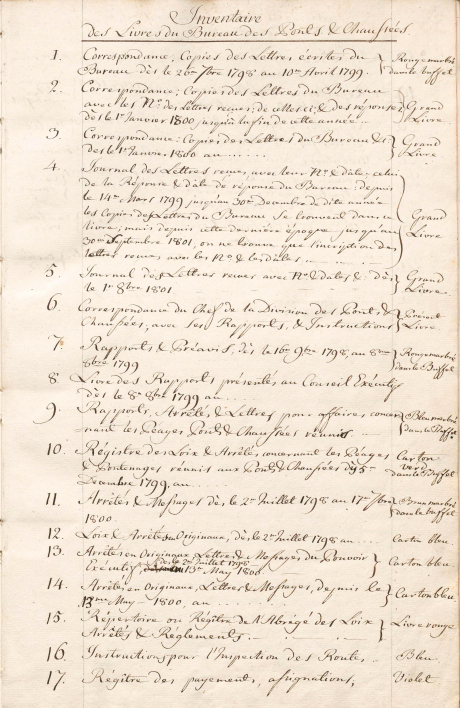 Inventaire
des Livres du Bureau des Ponts & Chaussées.
1. Correspondance; Copies des Lettres écrites du
Bureau dès le 26me 7bre 1798 au 10me Avril 1799. Rouge marbré
dans le buffet
2. Correspondance; Copies des Lettres du Bureau
avec les Nos des Lettres recues, de celles ci, & des réponses
dès le 1er Janvier 1800 jusqu'à la fin de cette année. Grand
Livre
3. Correspondance: Copies des Lettres du Bureau &c:
dès le 1er Janvier 1800 au . . . . Grand
Livre
4. Journal des Lettres recues, avec leur No & date, celui
de la Réponse & date de réponse du Bureau; depuis
le 14me Mars 1799 jusqu'au 30me Decembre de dite année
les Copies des Lettres du Bureau se trouvent dans ce
livre; mais depuis cette dernière époque jusqu'au
30me Septembre 1801, on ne trouve que l'inscription des
lettres recues avec les No & les dates. Grand
Livre
5. Journal des Lettres recues avec No & dates &: dès
le 1er 8bre 1801 Grand
Livre.
6. Correspondance du Chef de la Division des Ponts &
Chaussées, avec ses Rapports, & Instructions Livre
7. Rapports & Préavis, dès le 16me 9bre 1798, au 8me
8bre 1799 Rouge marbré
dans le Buffet
8. Livre des Rapports présentés au Conseil Exécutif
dès le 8me 8bre 1799 au . . . .
9. Rapports, Arrêtés, & Lettres pour affaires concer-
nant les Péages Ponts & Chaussées réunis. Bleu marbré
dans le Buffet
10. Régistre des Loix & Arrêtés concernant les Péages
& Pontenages réunis aux Ponts & Chaussées dès 5me
Decembre 1799, au . . . . Carton
vert
dans le Buffet
11. Arrêtés & Messages dès le 2me Juillet 1798 au 17me
1800. marbré
dans le buffet
12. Loix & Arrêtés en Originaux, dès le 2me Juillet 1798 au . . . . Carton bleu.
13. Arrêtés en Originaux, Lettres & Messages du Pouvoir
Exécutif, dès le 2me Juillet 1798
13me May 1800 Carton bleu.
14. Arrêtés en Originaux, Lettres & Messages, depuis le
13me May 1800, au . . . . Carton bleu.
15. Répertoire ou Régitre de l'Abrégé des Loix
Arrêtés & Réglements. Livre rouge
16. Instructions pour l'Inspection des Routes. Bleu.
17. Regître des payements, assignations, Violet